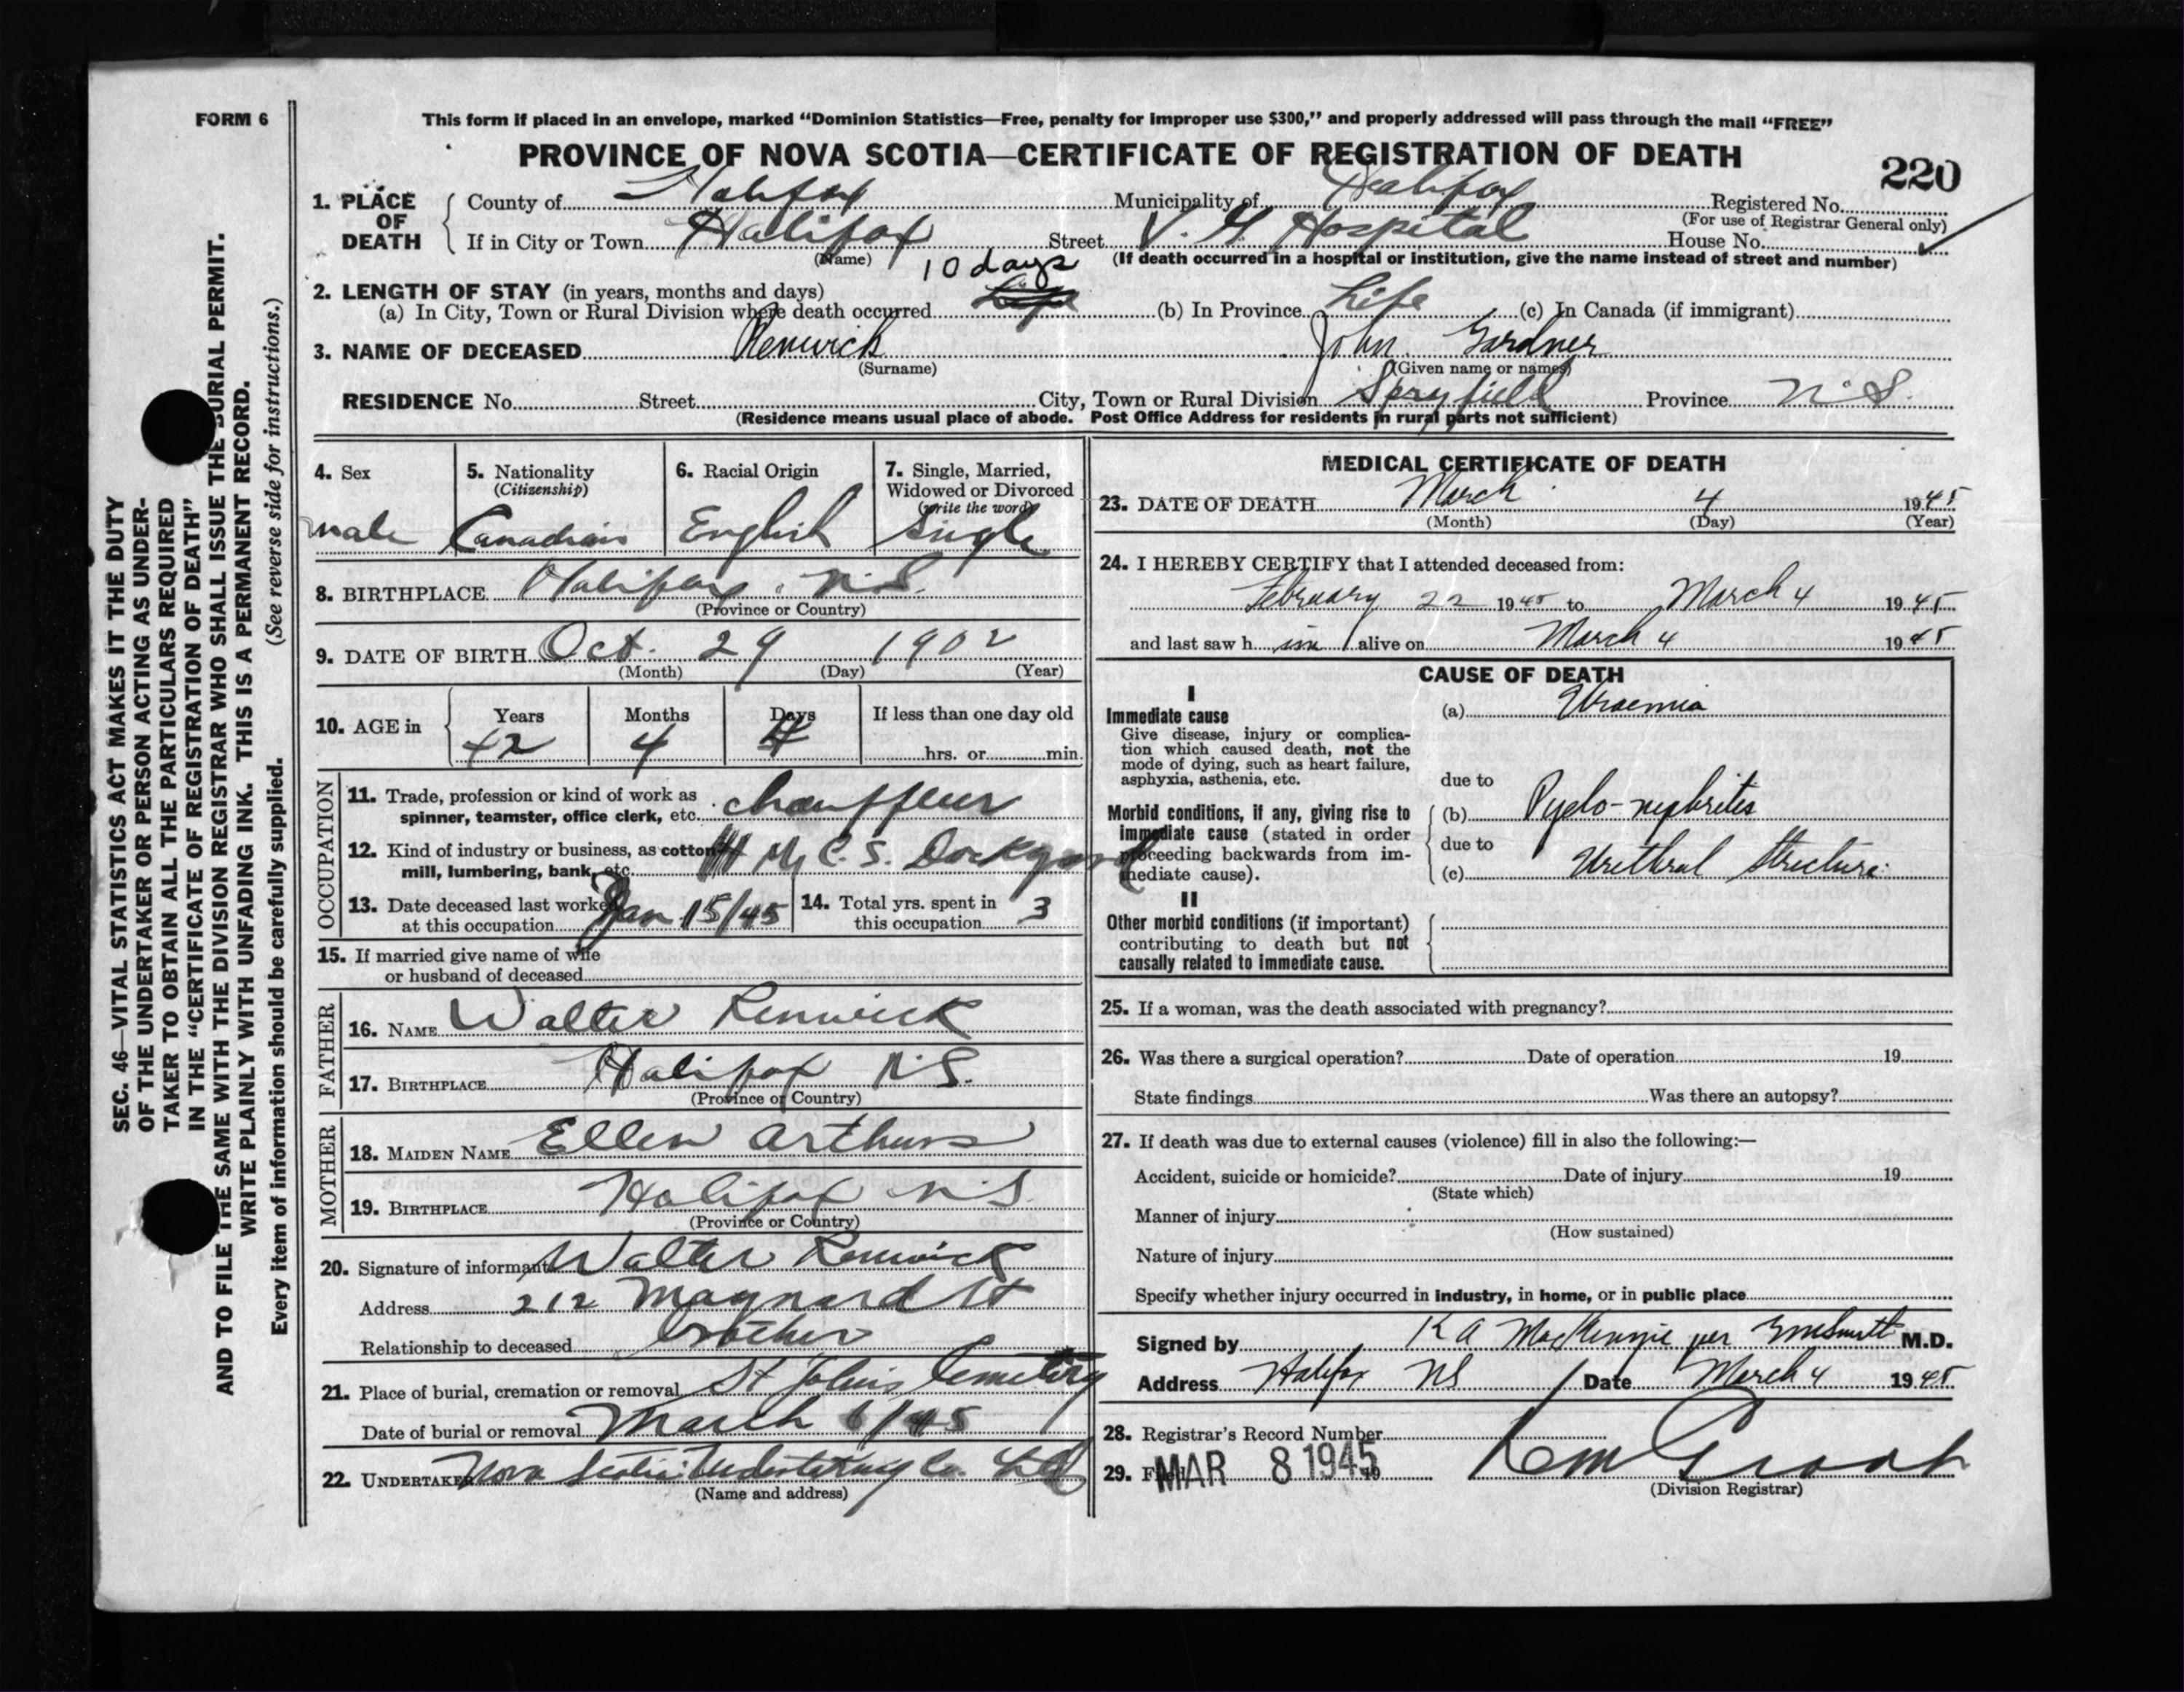 FORM 6
This form if placed in an envelope, marked “Dominion Statistics—Free, penalty for improper use $300,” and properly addressed will pass through the mail “FREE”
PROVINCE OF NOVA SCOTIA—CERTIFICATE OF REGISTRATION OF DEATH
220
1. PLACE OF DEATH
County of Halifax Municipality of Halifax Registered No.
(For use of Registrar General only)
If in City or Town Halifax Street V. G Hospital House No.
(Name) (If death occurred in a hospital or institution, give the name instead of street and number)
10 days
2. LENGTH OF STAY (in years, months and days)
(a) In City, Town or Rural Division where death occurred Life (b) In Province Life (c) In Canada (if immigrant)
3. NAME OF DECEASED Renwick John Gardner
(Surname) (Given name or names)
RESIDENCE No. Street City, Town or Rural Division Spryfield Province N.S.
(Residence means usual place of abode. Post Office Address for residents in rural parts not sufficient)
4. Sex 5. Nationality 6. Racial Origin 7. Single, Married,
(Citizenship) Widowed or Divorced
(write the word)
male Canadian English Single
8. BIRTHPLACE Halifax, N.S.
(Province or Country)
9. DATE OF BIRTH Oct. 29 1902
(Month) (Day) (Year)
10. AGE in Years Months Days If less than one day old
42 4 hrs. or min.
OCCUPATION
11. Trade, profession or kind of work as
spinner, teamster, office clerk, etc. chauffeur
12. Kind of industry or business, as cotton
mill, lumbering, bank, etc. H M C. S. Dockyard
13. Date deceased last worked
at this occupation Jan 15/45
14. Total yrs. spent in
this occupation 3
15. If married give name of wife
or husband of deceased
FATHER
16. NAME Walter Renwick
17. BIRTHPLACE Halifax N.S.
(Province or Country)
MOTHER
18. MAIDEN NAME Ellen Arthurs
19. BIRTHPLACE Halifax N S.
(Province or Country)
20. Signature of informant Walter Renwick
Address 212 Maynard St
Relationship to deceased brother
21. Place of burial, cremation or removal St John's Cemetery
Date of burial or removal March 6/45
22. UNDERTAKER Nova Scotia Undertaking Co. Ltd
(Name and address)
MEDICAL CERTIFICATE OF DEATH
23. DATE OF DEATH March 4 1945
(Month) (Day) (Year)
24. I HEREBY CERTIFY that I attended deceased from:
February 22 1945 to March 4 1945
and last saw h im alive on March 4 1945
CAUSE OF DEATH
I
Immediate cause
Give disease, injury or complica-
tion which caused death, not the
mode of dying, such as heart failure,
asphyxia, asthenia, etc.
(a) Uraemia
due to
Morbid conditions, if any, giving rise to
immediate cause (stated in order
proceeding backwards from im-
mediate cause).
(b) Pyelo-nephritis
due to
(c) Urethral Stricture.
II
Other morbid conditions (if important)
contributing to death but not
causally related to immediate cause.
25. If a woman, was the death associated with pregnancy?
26. Was there a surgical operation? Date of operation 19
State findings Was there an autopsy?
27. If death was due to external causes (violence) fill in also the following:—
Accident, suicide or homicide? Date of injury 19
(State which)
Manner of injury
(How sustained)
Nature of injury
Specify whether injury occurred in industry, in home, or in public place
Signed by K A MacKenzie per M.D.
Address Halifax NS Date March 4 1945
28. Registrar's Record Number
29. Filed MAR 8 1945 19
(Division Registrar)
SEC. 46—VITAL STATISTICS ACT MAKES IT THE DUTY
OF THE UNDERTAKER OR PERSON ACTING AS UNDER-
TAKER TO OBTAIN ALL THE PARTICULARS REQUIRED
IN THE “CERTIFICATE OF REGISTRATION OF DEATH”
AND TO FILE THE SAME WITH THE DIVISION REGISTRAR WHO SHALL ISSUE THE BURIAL PERMIT.
WRITE PLAINLY WITH UNFADING INK. THIS IS A PERMANENT RECORD.
Every item of information should be carefully supplied. (See reverse side for instructions.)